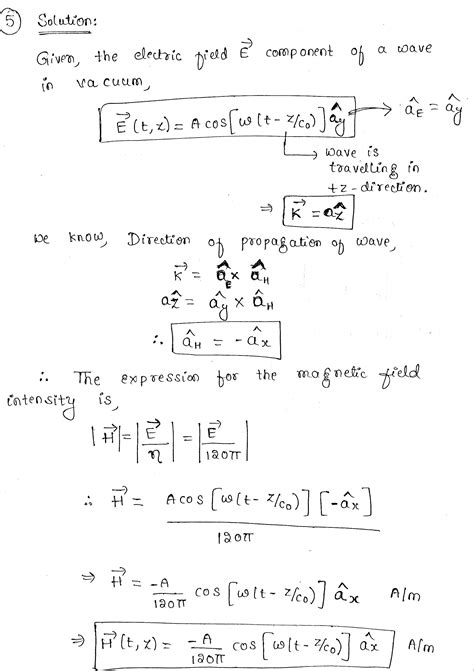 5 Solution:
Given, the electric field E⃗ component of a wave
in vacuum,
E⃗ (t,z) = A cos[ω(t - z/c₀)] â_y → â_E = â_y
→ wave is
travelling in
+z-direction.
⇒ K⃗ = aẑ
We know, Direction of propagation of wave,
K⃗ = â_E × â_H
aẑ = â_y × â_H
∴ â_H = -â_x
∴ The expression for the magnetic field
intensity is,
|H⃗| = |E⃗/η| = |E⃗/120π|
∴ H⃗ = A cos[ω(t - z/c₀)] [-â_x] / 120π
⇒ H⃗ = -A/120π cos[ω(t - z/c₀)] â_x A/m
⇒ H⃗(t,z) = -A/120π cos[ω(t - z/c₀)] â_x A/m